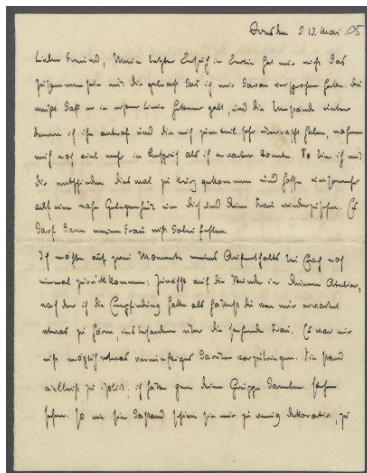 Dresden d 13. Mai. 05
Lieber Freund, Mein letzter Besuch in Berlin hat mir nicht das
Zusammensein mit dir gebracht das ich mir davon versprochen hatte. Du
weißt daß er in erster Linie galt, und die Umstände unter
denen ich ihn antraf und die mich zum teil sehr überrascht haben, nahmen
mich noch viel mehr in Anspruch als ich erwarten konnte. So bin ich mit
dir entschieden diesmal zu kurz gekommen und hoffe nunmehr
auf eine nahe Gelegenheit um dich und deine Frau wiederzusehen. Es
darf dann meine Frau nicht dabei fehlen.
Ich möchte auf zwei Momente meines Aufenthalts bei Euch noch
einmal zurückkommen: Zunächst auf die Stunde in Deinem Atelier,
nach der ich die Empfindung hatte als hättest du von mir erwartet
etwas zu hören, insbesondere über die stehende Frau. Es war mir
nicht möglich etwas vernünftiges darüber vorzubringen. Sie stand
vielleicht zu ; ich hätte gern deine Gruppe daneben stehen
sehen. So wie sie dastand schien sie mir zu wenig dekorativ, zu